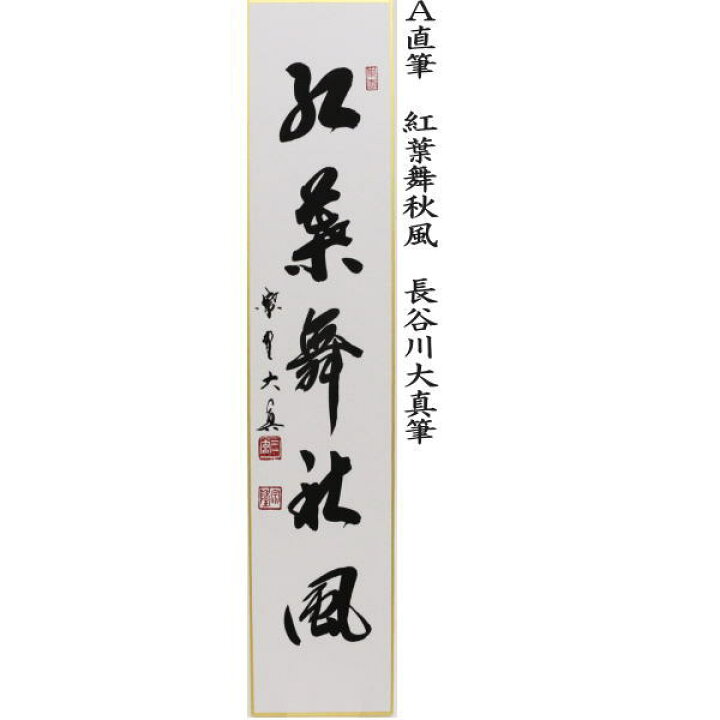 A直筆 紅葉舞秋風 長谷川大真筆
紅葉舞秋風
大真